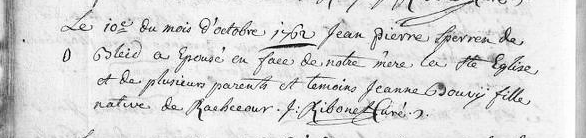 Le 10e du mois d'octobre 1762 Jean pierre sperren de
Bleid a Epousé en face de notre mere la Ste Eglise
et de plusieurs parents et temoins Jeanne Bouvÿ fille
native de Rachecour. J: Ribonet Curé